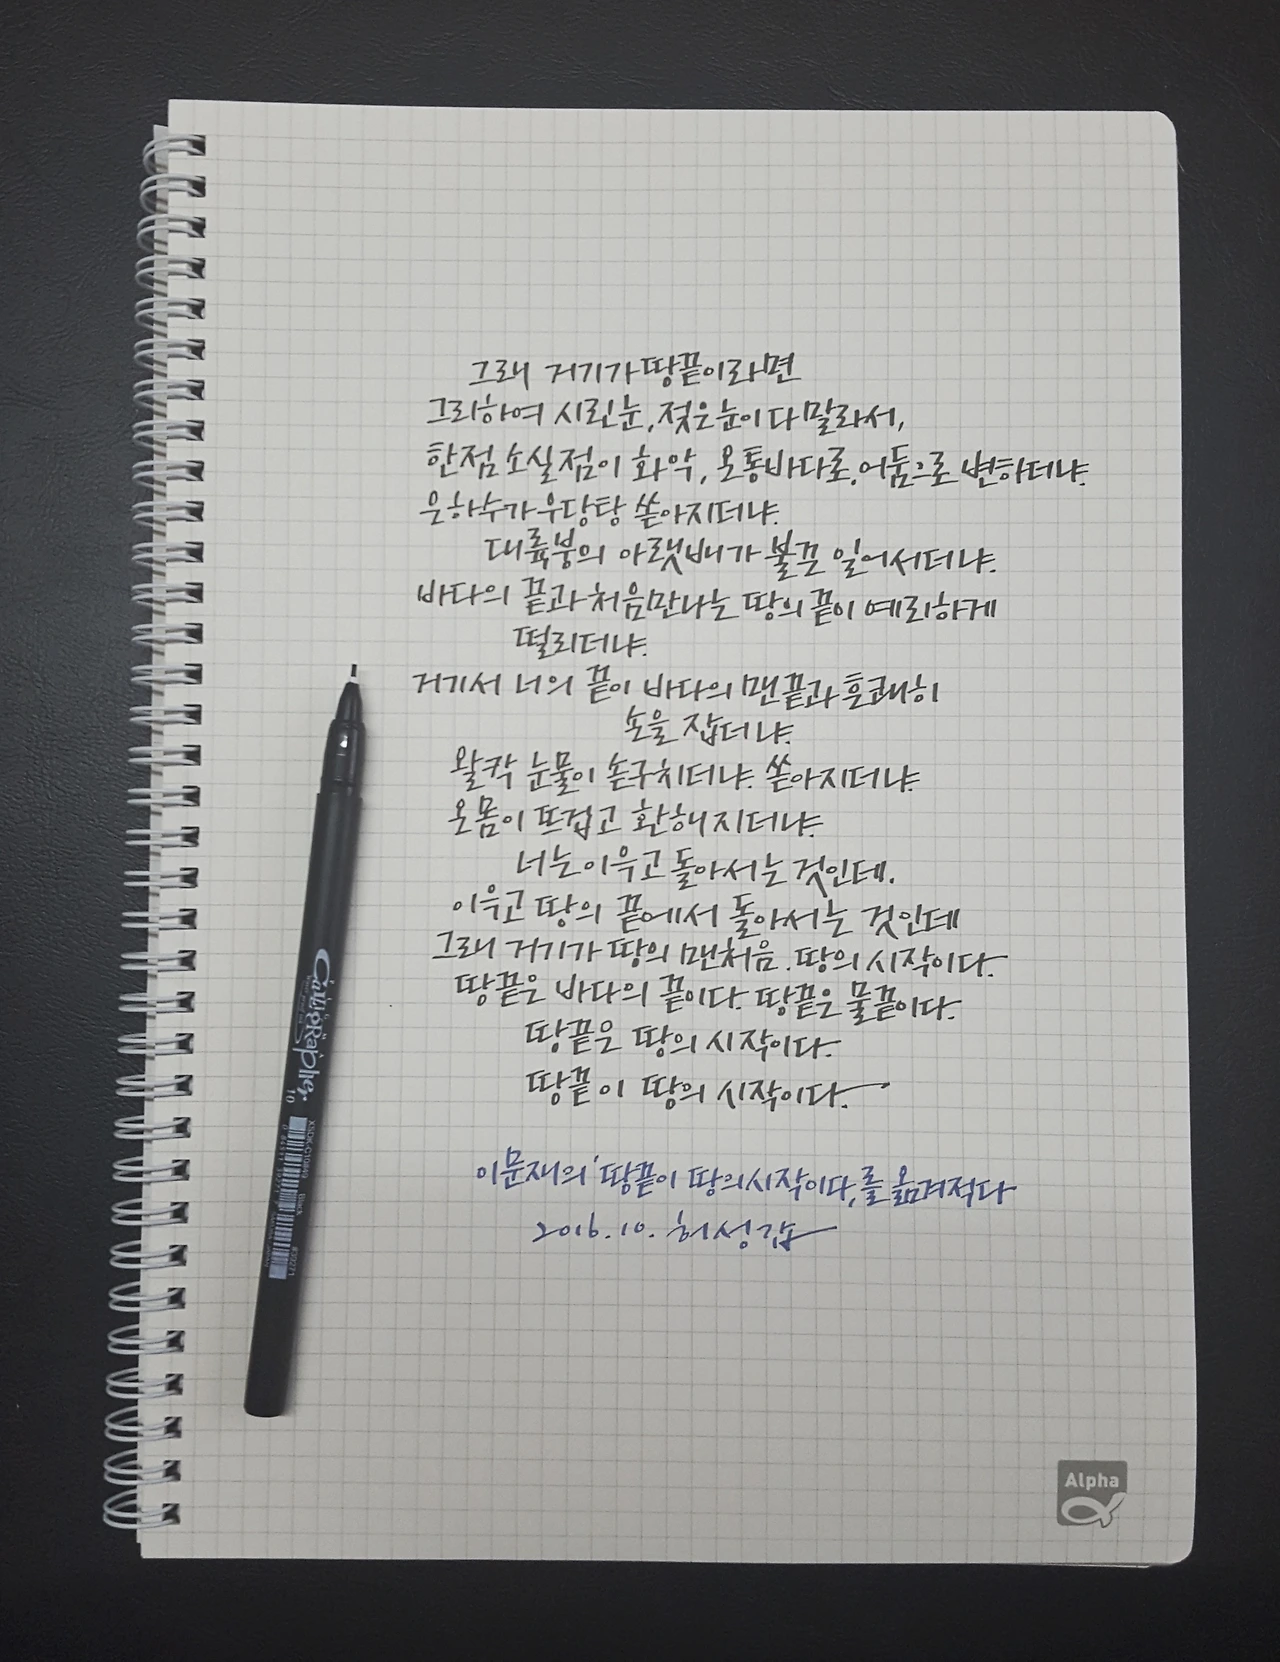 그래 거기가 땅끝이라면
그리하여 시린 눈, 젖은 눈이 다 말라서,
한점 소실점이 화악, 온통 바다로, 어둠으로 변하더냐.
은하수가 우당탕 쏟아지더냐.
대륙붕의 아랫배가 불끈 일어서더냐.
바다의 끝과 처음 만나는 땅의 끝이 예리하게
떨리더냐.
거기서 너의 끝이 바다의 맨끝과 흔쾌히
손을 잡더냐.
왈칵 눈물이 솟구치더냐. 쏟아지더냐.
온몸이 뜨겁고 환해지더냐.
너는 이윽고 돌아서는 것인데.
이윽고 땅의 끝에서 돌아서는 것인데
그래 거기가 땅의 맨처음. 땅의 시작이다.
땅끝은 바다의 끝이다. 땅끝은 물끝이다.
땅끝은 땅의 시작이다.
땅끝이 땅의 시작이다.
이문재의 '땅끝이 땅의 시작이다,를 옮겨적다
2016.10. 허성갑
Calligrapher
10
Black
Alpha